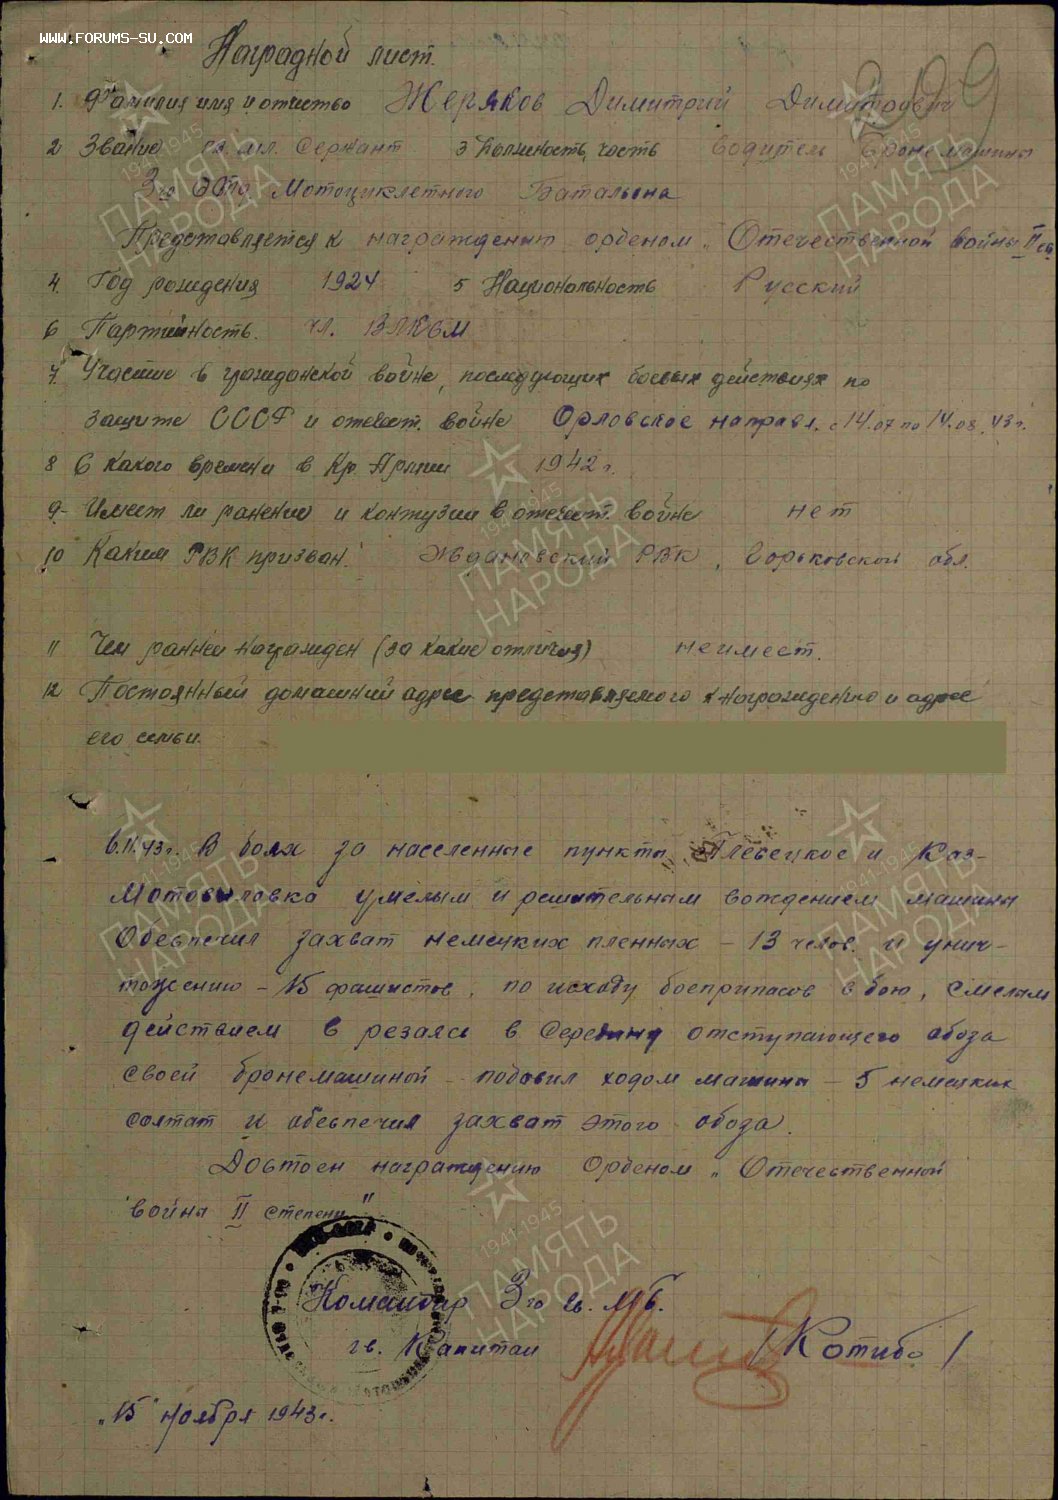 WWW.FORUMS-SU.COM
209
Наградной лист.
1. Фамилия имя и отчество Жеряков Димитрий Димитрович
2 Звание гв. мл. Сержант 3 Должность, часть водитель Бронемашины
3го Отд. Мотоциклетного Батальона
Представляется к награждению орденом „Отечественной войны II ст
4. Год рождения 1924 5 Национальность Русский
6 Партийность. чл. ВЛКСМ
7. Участие в гражданской войне, последующих боевых действиях по
защите СССР и отечест. войне Орловское направл. с 14.07 по 14.08.43 г.
8 С какого времени в Кр. Армии 1942 г.
9- Имеет ли ранение и контузии в отечест. войне нет
10 Каким РВК призван. Ждановский РВК, Горьковской обл.
11 Чем раннеи награжден (за какие отличия) неимеет.
12 Постоянный домашний адрес представляемого к награждению и адрес
его семьи.
6.11.43 г. В боях за населенные пункты Глевецкое и Каз-
Мотовиловка умелым и решительным вождением машины
Обеспечил захват немецких пленных – 13 челов. и унич-
тожению – 15 фашистов, по исходу боеприпасов в бою, смелым
действием в резаясь в Середину отступающего обоза
своей бронемашиной – подавил ходом машины – 5 немецких
солтат и обеспечил захват этого обоза.
Достоен награждению Орденом „Отечественной
война II степени"
Командир 3го гв. МБ.
гв. Капитан /Котибо/
„15" ноября 1943 г.
ПАМЯТЬ
НАРОДА
1941-1945